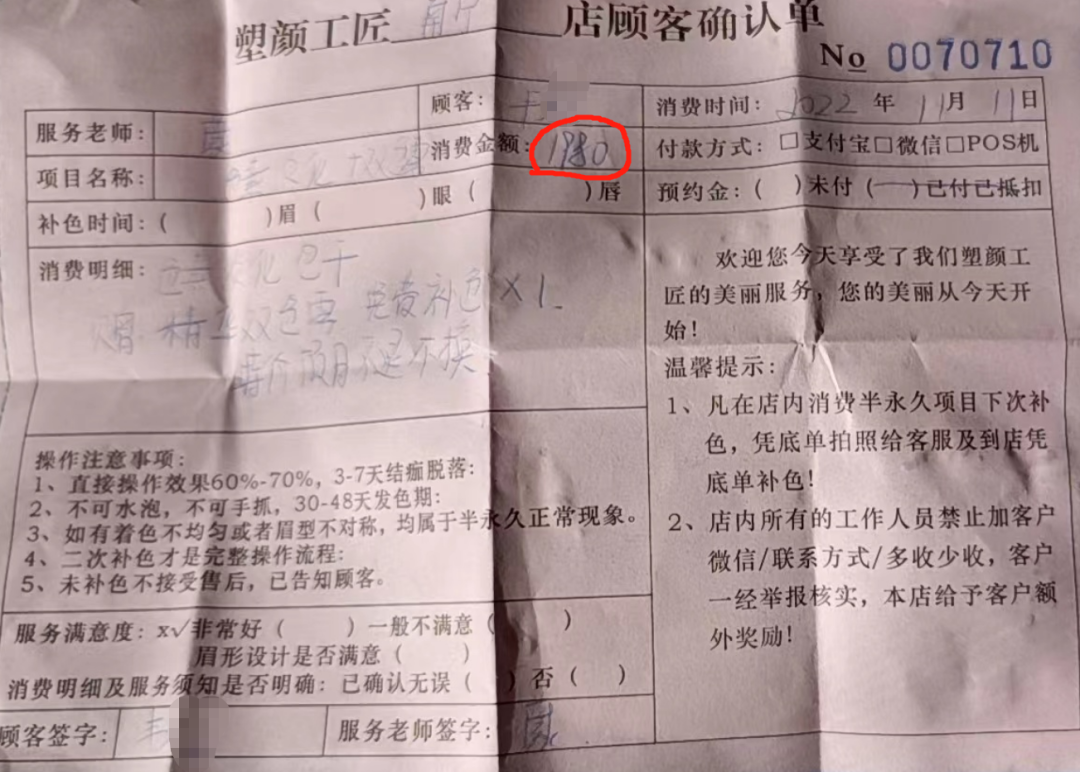 塑颜工匠 南宁 店顾客确认单
No 0070710
服务老师:
顾客: 韦
消费时间: 2022 年 11月 11日
项目名称:
消费金额: 1980
付款方式: □支付宝□微信□POS机
补色时间:( )眉( )眼( )唇
预约金:( )未付(一)已付已抵扣
消费明细:
淡化包干
免费补色X1
特价项目不退不换
欢迎您今天享受了我们塑颜工
匠的美丽服务,您的美丽从今天开
始!
温馨提示:
1、凡在店内消费半永久项目下次补
色,凭底单拍照给客服及到店凭
底单补色!
2、店内所有的工作人员禁止加客户
微信/联系方式/多收少收,客户
一经举报核实,本店给予客户额
外奖励!
操作注意事项:
1、直接操作效果60%-70%,3-7天结痂脱落:
2、不可水泡,不可手抓,30-48天发色期:
3、如有着色不均匀或者眉型不对称,均属于半永久正常现象。
4、二次补色才是完整操作流程:
5、未补色不接受售后,已告知顾客。
服务满意度:x√非常好( )一般不满意( )
眉形设计是否满意( )
消费明细及服务须知是否明确:已确认无误( )否( )
顾客签字: 韦
服务老师签字: